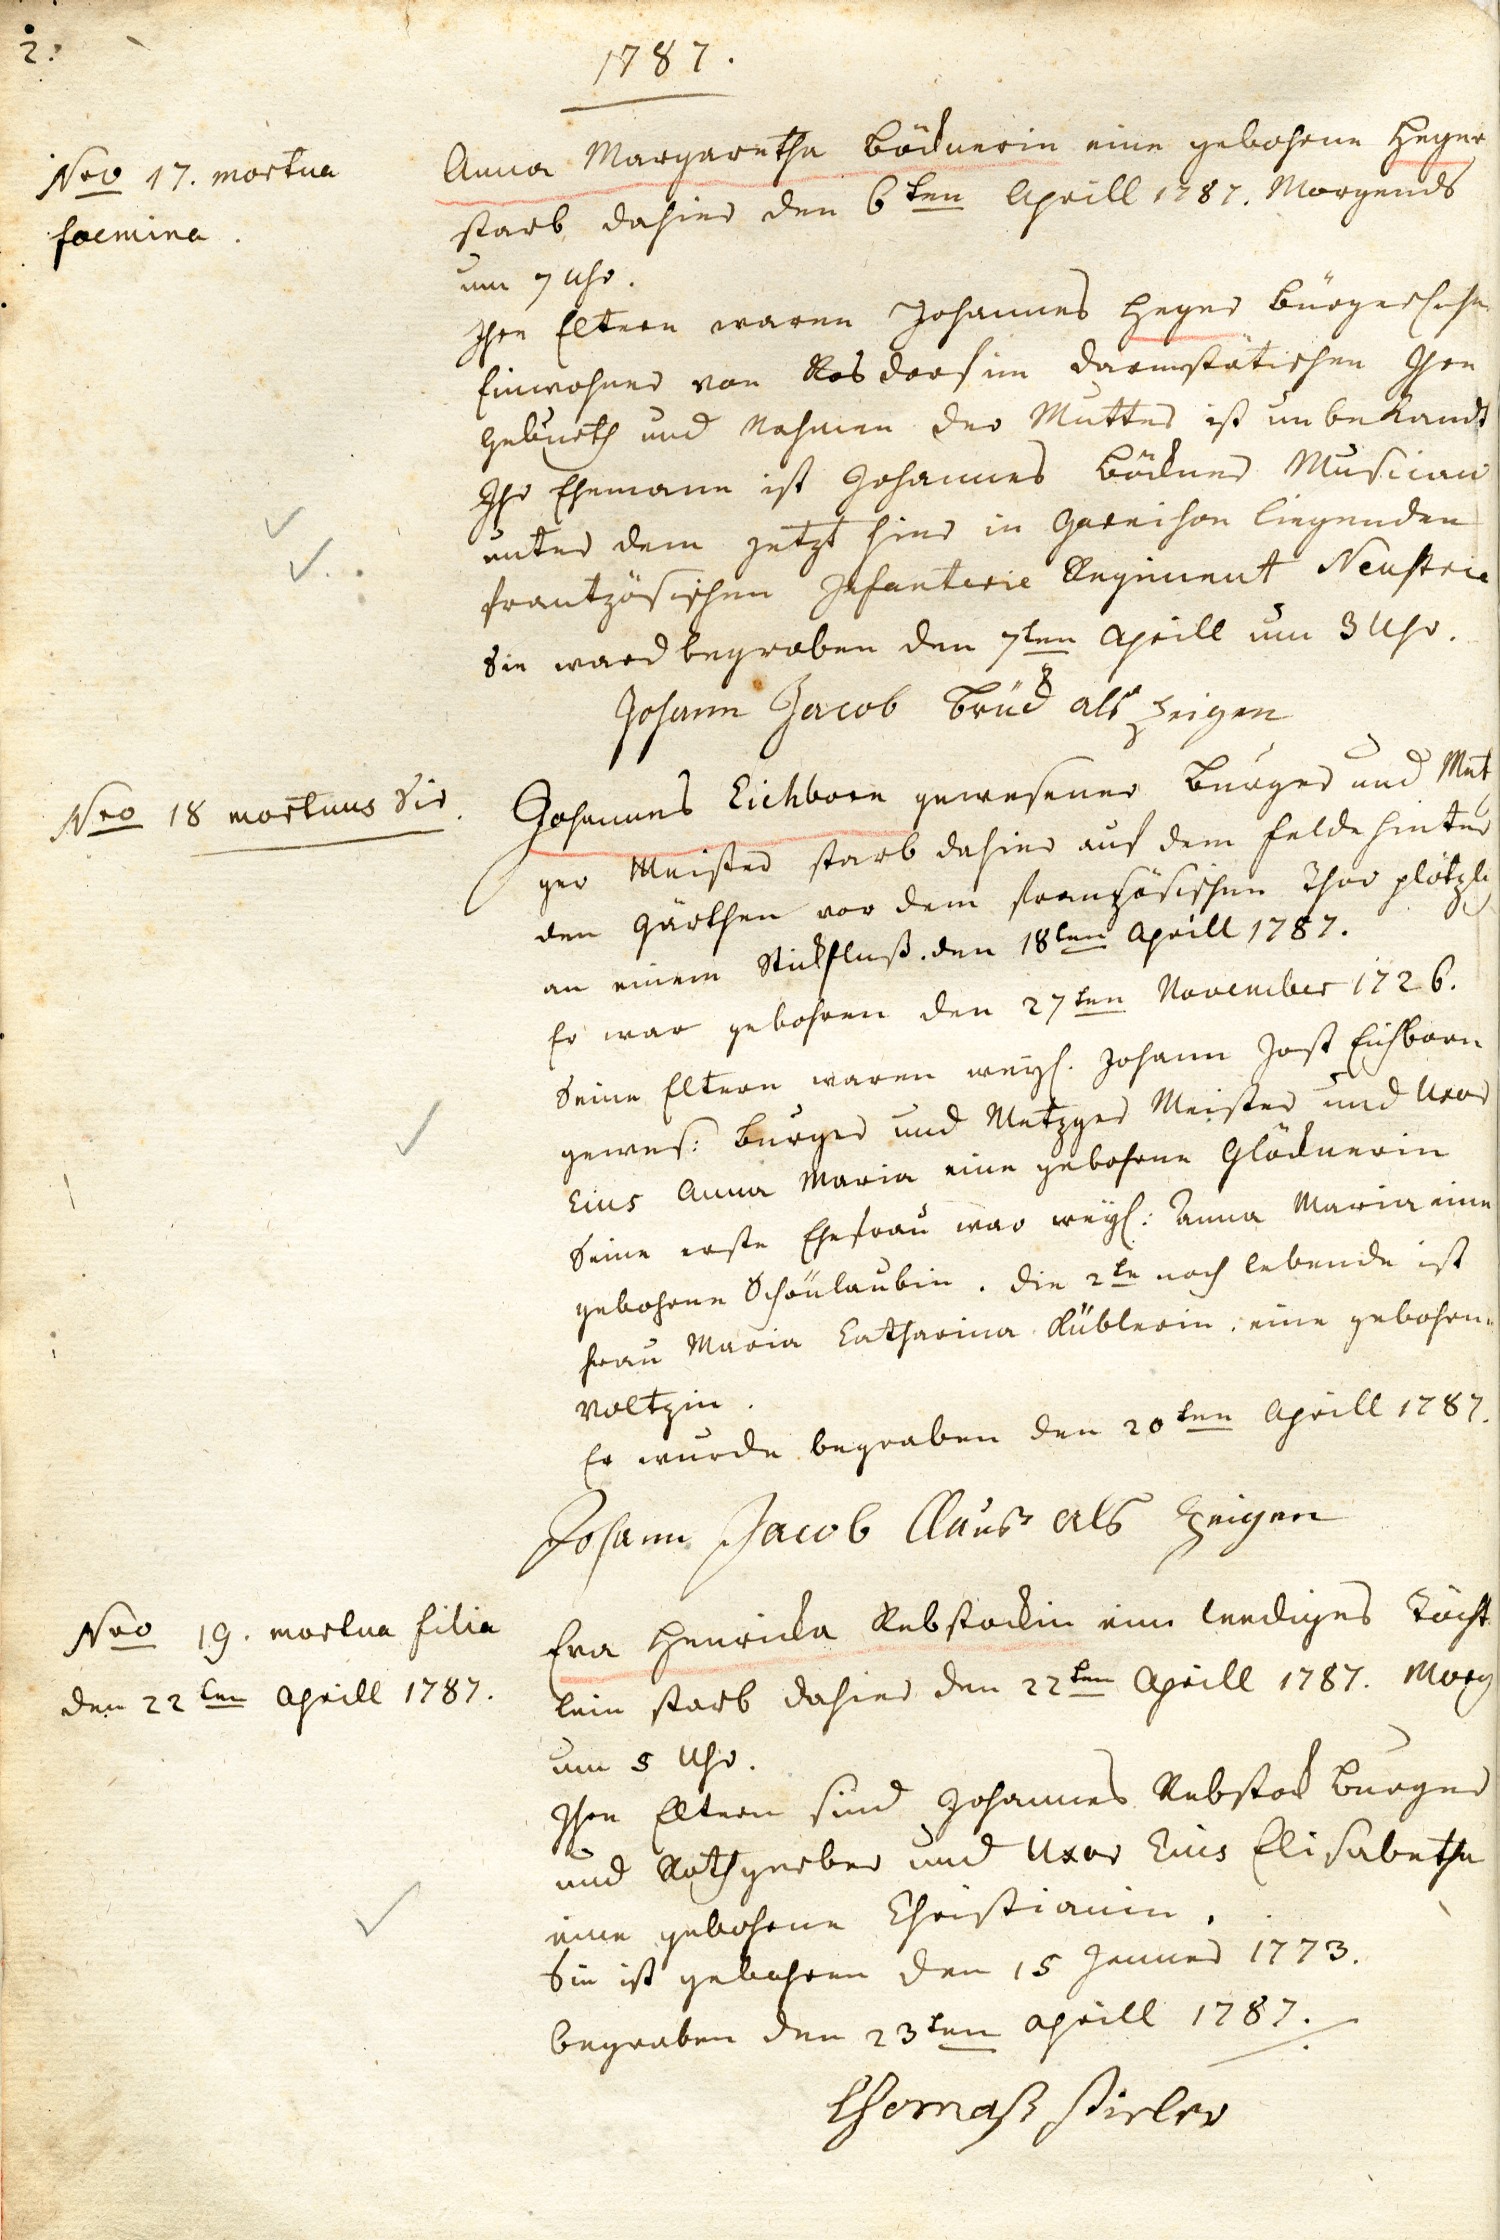 2.
1787.
Nro 17. mortua
foemina.
Anna Margaretha Böcknerin eine gebohrne Heger
starb dahier den 6ten Aprill 1787. Morgends
um 7 Uhr.
Ihre Eltern waren Johannes Heger Bürgerl. 
Einwohner von Rosdorf im Darmstätischen Ihre
Geburth und Nahmen der Mutter ist unbekandt
Ihr Ehemann ist Johannes Böckner Musician
unter dem jetzt hier in Garnison liegenden
frantzösischen Infanterie Regiment Neustrie
Sie ward begraben den 7ten Aprill um 3 Uhr.
Johann Jacob als Zeigen
Nro 18 mortuus Vir.
Johannes Eichborn gewesener Burger und Metz
ger Meister starb dahier auf dem Felde hinter
den Gärthen vor dem französischen Thor plötzli
an einem Stickfluß. den 18ten Aprill 1787.
Er war gebohren den 27ten November 1726.
Seine Eltern waren weyl. Johann Jost Eichborn
gewes: Burger und Metzger Meister und Uxor
Eius Anna Maria eine gebohrne Glöcknerin
Seine erste Ehefrau war weyl: Anna Maria eine
gebohrne Schönlaubin. die 2te noch lebende ist
Frau Maria Catharina Küblerin, eine gebohrne
Voltzin.
Er wurde begraben den 20ten Aprill 1787.
Johann Jacob Clauß als Zeigen
Nro 19. mortua filia
den 22ten Aprill 1787.
Eva Henricka Rebstockin ein leediges Töcht
lein starb dahier den 22ten Aprill 1787. Morg
um 5 Uhr.
Ihre Eltern sind Johannes Rebstock Burger
und Rothgerber und Uxor Eius Elisabetha
eine gebohrne Christianin.
Sie ist gebohren den 15 Jenner 1773.
begraben den 23ten Aprill 1787.
Thomaß Stieler